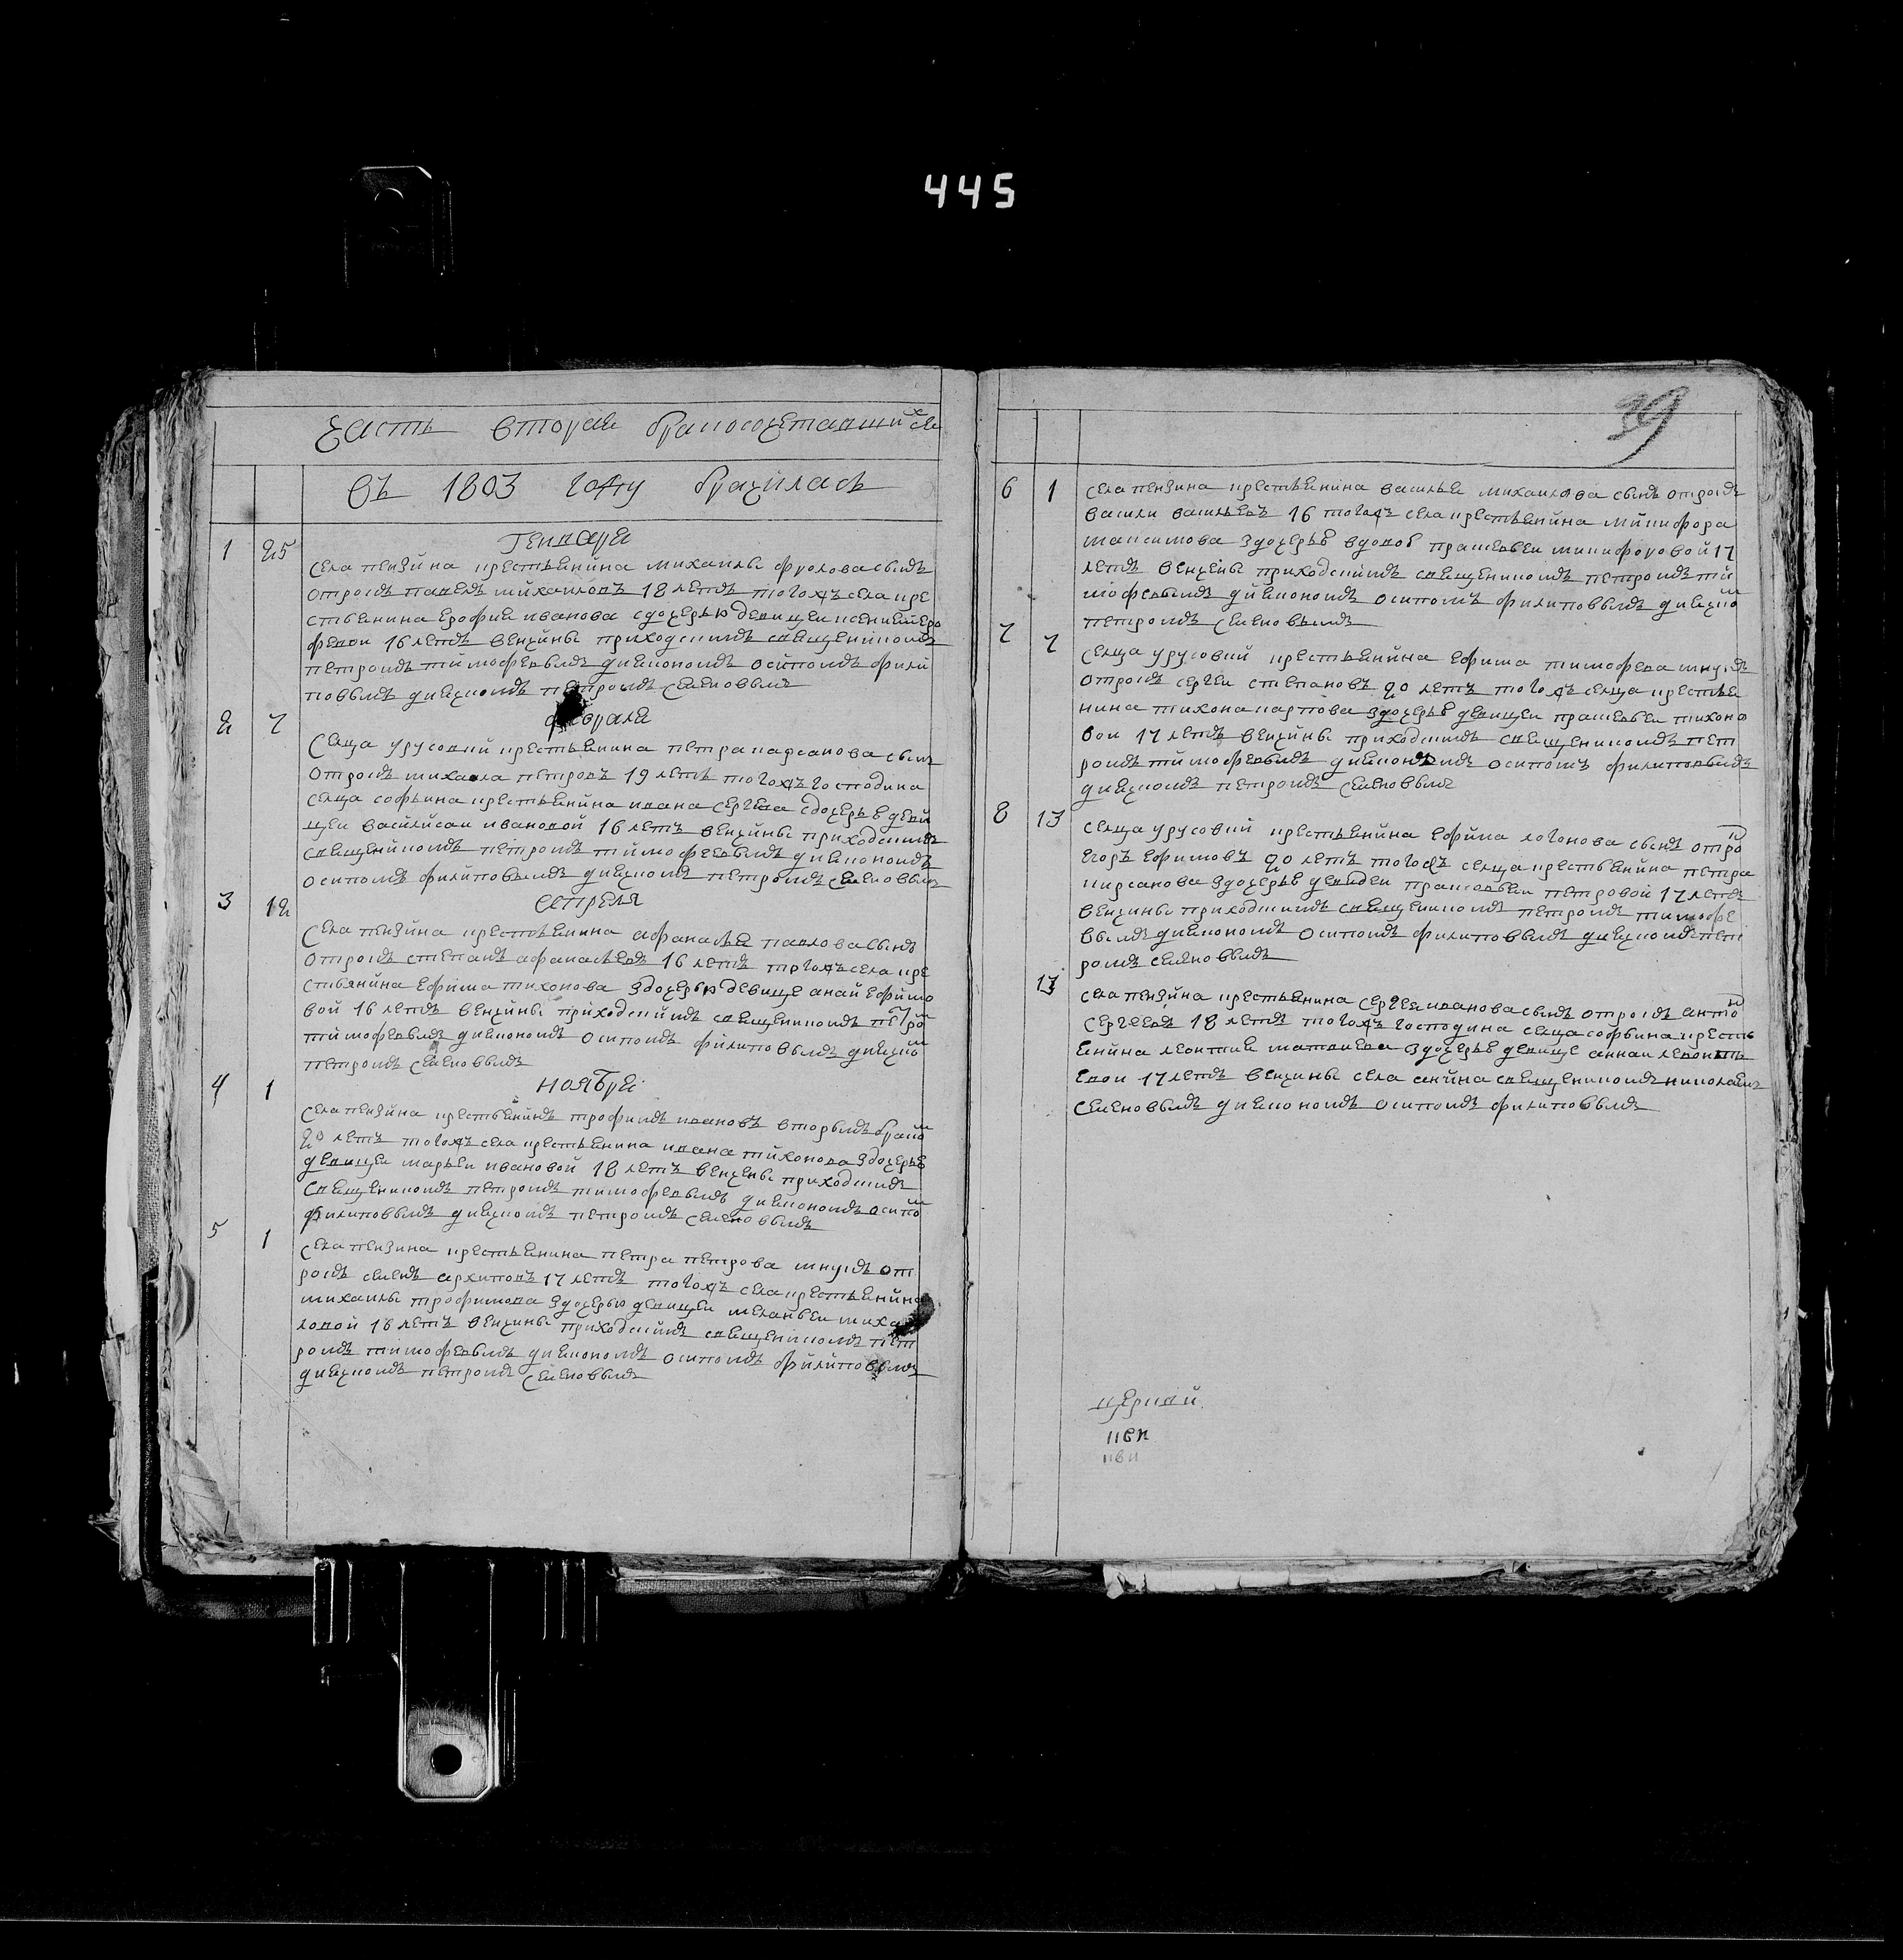 445
часть вторая бракосочетавшихся
въ 1803 году брачилась
39
Генваря
1 25 села пензина крестьянина михаилы фролова сынъ
отрокъ павелъ михаиловъ 18 летъ тогожъ села кре
стьянина ерофия иванова сдочерью девицеи ксенией еро
феевои 16 летъ венчаны приходскимъ священникомъ
петромъ тимофевымъ диякономъ осипомъ фили
повымъ диячкомъ петромъ семеновымъ
февраля
2 7 селца урусовий крестьянина петра карсакова сынъ
отрокъ михаила петровъ 19 летъ тогожъ господина
селца софьина крестьянина ивана сергеева сдочерьѣ деви
цеи василисаи ивановой 16 летъ венчаны приходскимъ
священникомъ петромъ тимофевымъ диякономъ
осипомъ филиповымъ диячкомъ петромъ семеновымъ
апреля
3 12 села пензина крестьянина афанасья павлова сынъ
отрокъ степанъ афанасьевъ 16 летъ тогожъ села кре
стьянина ефима тихонова здочерью девице анай ефимо
вой 16 летъ венчаны приходскимъ священникомъ петром
тимофевымъ дияконом осипомъ филиповымъ диячком
петромъ семеновымъ
ноября
4 1 села пензина крестьянинъ трофимъ ивановъ вторымъ браком
20 летъ тогожъ села крестьянина ивана тихонова здочерьѣ
девицеи марьеи ивановой 18 летъ венчены приходскимъ
священникомъ петромъ тимофевымъ дияконом осипом
филиповымъ диячкомъ петромъ семеновымъ
5 1 села пензина крестьянина петра петрова внукъ от
рокъ семенъ архиповъ 17 летъ тогожъ села крестьянина
михаилы трофимова здочерью девицеи меланьеи михаи
ловой 16 летъ венчаны приходскимъ священникомъ пет
ромъ тимофевымъ дияконом осипомъ филиповымъ
диячкомъ петромъ семеновымъ
6 1 села пензина крестьянина василья михаилова сынъ отрокъ
василий васильевъ 16 тогожъ села крестьянина никифора
максимова здочерьѣ вдовоѣ прасковьеи никифоровой 17
летъ венчены приходскимъ священникомъ петромъ ти
мофевымъ дияконом осипомъ филиповымъ диячком
петромъ семеновымъ
7 7 селца урусовий крестьянина ефима тимофева внукъ
отрокъ сергеи степановъ 20 летъ тогожъ селца крестья
нина тихона карпова здочерьѣ девицеи прасковьеи тихоно
вои 17 летъ венчены приходскимъ священникомъ пет
ромъ тимофевымъ дияконом осипомъ филиповымъ
диячкомъ петромъ семеновымъ
8 13 селца урусовий крестьянина ефима логонова сынъ отрок
егоръ ефимовъ 20 летъ тогожъ селца крестьянина петра
кирсанова здочерьѣ девицеи прасковьеи петровой 17 летъ
венчаны приходскимъ священникомъ петромъ тимофе
вымъ дияконом осипомъ филиповымъ диячкомъ пет
ромъ семеновымъ
13 села пензина крестьянина сергея иванова сынъ отрокъ антон
сергеевъ 18 летъ тогожъ господина селца софьина кресть
янина леонтия матвиева здочерьѣ девице аннаи леонть
евои 17 летъ венчаны села анина священникомъ николаемъ
семеновымъ дияконом осипомъ филиповымъ